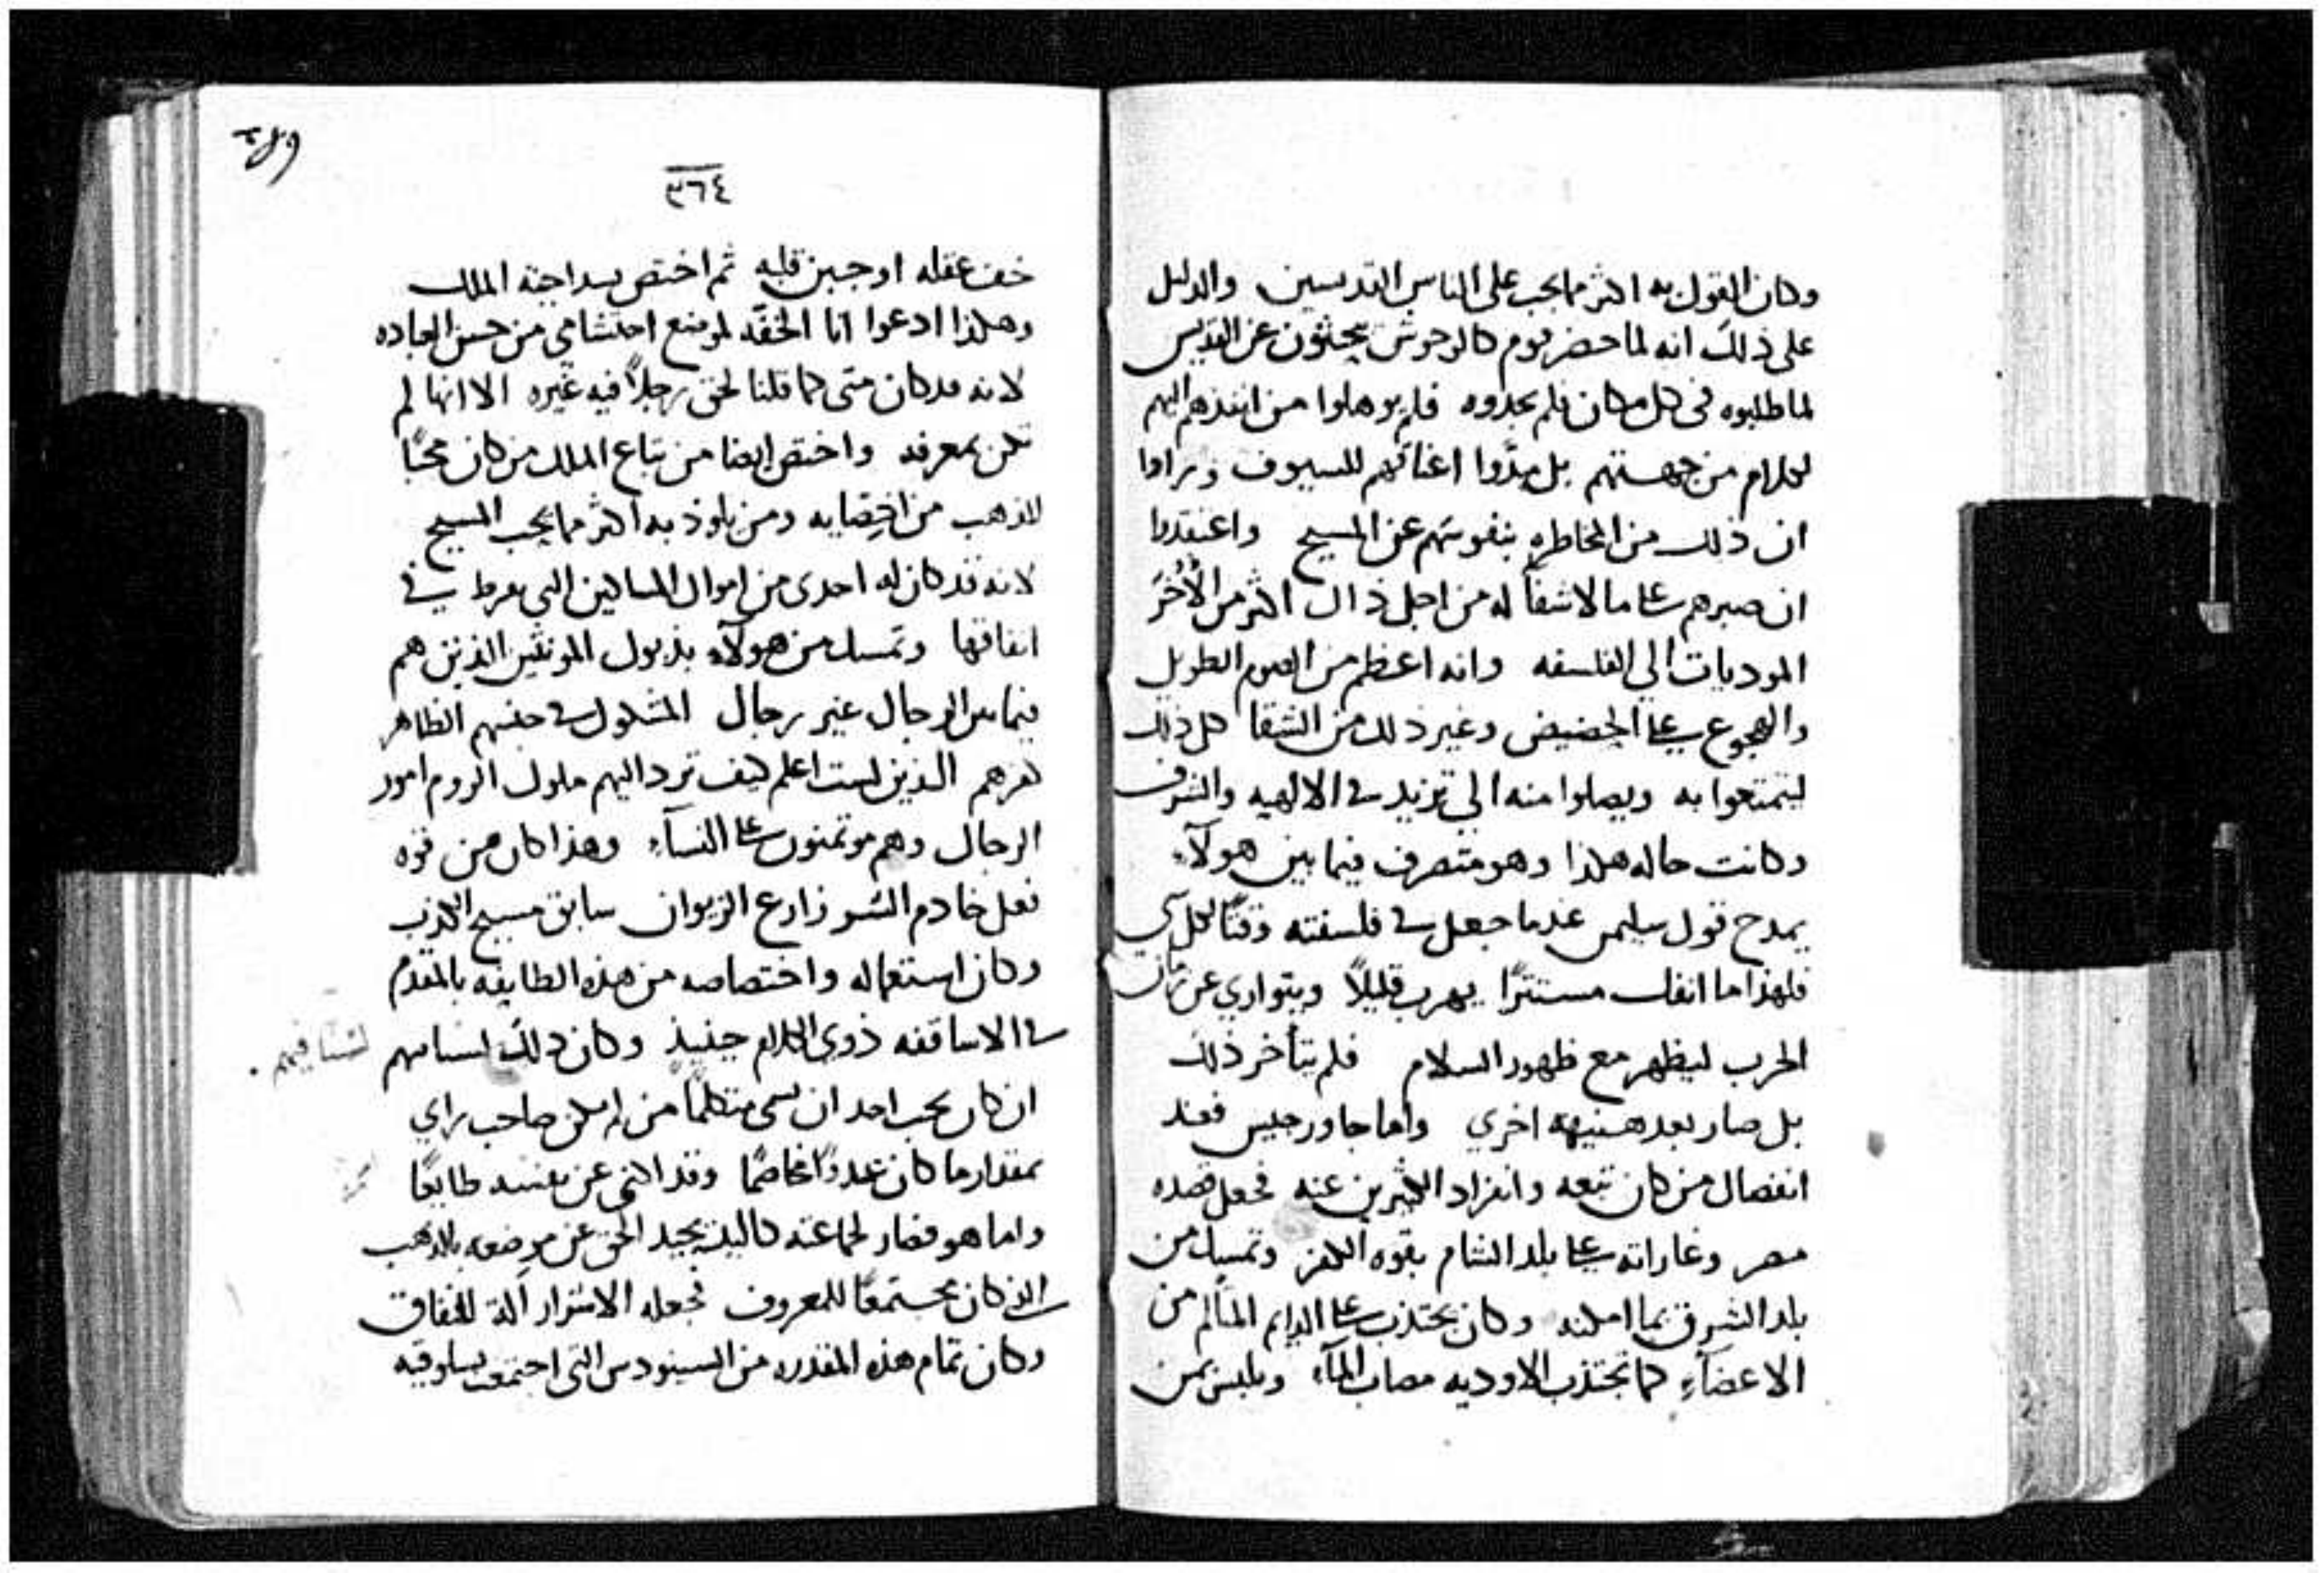 وكان القول به اكثر مما يجب على الناس القديسين والدليل
على ذلك انه لما حضر قوم كالوحوش يبحثون عن القديس
لما طلبوه في كل مكان فلم يجدوه فلم يوهلوا من انفذهم اليهم
لكلام من جهستهم بل مدّوا اعناقهم للسيوف وراوا
ان ذلك من المخاطره بنفوسهم عن المسيح واعتقدوا
ان صبرهم على ما لا شفاً له من اجل ذاك اكثر من الأُخَر
الموديات الي الفلسفه وانه اعظم من الصوم الطويل
والهجوع على الحضيض وغير ذلك من الشقا كل ذلك
ليتمتعوا به ويصلوا منه الي تزيد في الالهيه والشرف
وكانت حاله هكذا وهو متصرف فيما بين هولآء
يمدح قول سليمن عندما جعل في فلسفته وقتًا لكل شي
فلهذا ما انفك مستترًا يهرب قليلاً ويتواري عن زمان
الحرب ليظهر مع ظهور السلام فلم يتأخر ذلك
بل صار بعد هنيهه اخري واما جاورجيس فعند
انفصال من كان تبعه وانفراد الكثيرين عنه فجعل قصده
مصر وغاراته على بلد الشام بقوه الكفر وتمسك من
بلد الشرق بما امكنه وكان يجتذب على الدايم المتألم من
الاعضآء كما تجتذب الاوديه مصاب المآء ويلبس بمن
٤٨٩
٣٦٤
خف عقله او جبن قلبه ثم اختص بسداجة الملك
وهكذا ادعوا انا الخفّه لموضع احتشامي من حسن العباده
لانه قد كان متى كما قلنا لحق رجلاً فيه غيره الا انها لم
تكن بمعرفه واختص ايضا من تباع الملك من كان محبًا
للذهب من اخصايه ومن يلوذ به اكثر مما يحب المسيح
لانه قد كان له احدى من اموال المساكين التي يفرط في
انفاقها وتمسك من هولآء بذيول المونثين الذين هم
فيما بين الرجال غير رجال المشكوك في جنسهم الظاهر
كفرهم الذين لست اعلم كيف ترد اليهم ملوك الروم امور
الرجال وهم موتمنون على النسآء وهذا كان من قوه
فعل خادم الشر زارع الزيوان سابق مسيح الكذب
وكان استعماله واختصاصه من هذه الطايفه بالمقدم
في الاساقفه ذوي الكلام حينيذ وكان ذلك لسانهم
لسنا فيهم
ان كان يجب احد ان يسمى متكلمًا من لم يكن صاحب راي
بمقدار ما كان عدوًا مخاصمًا وقد اكني عن نفسه طايعًا
واما هو فصار لجماعته كاليد يحيد الحق عن موضعه بالذهب
الذي كان مجتمعًا للمعروف فجعله الاشرار آلة للنفاق
وكان تمام هذه المقدره من السينودس التي اجتمعت بسلوقيه